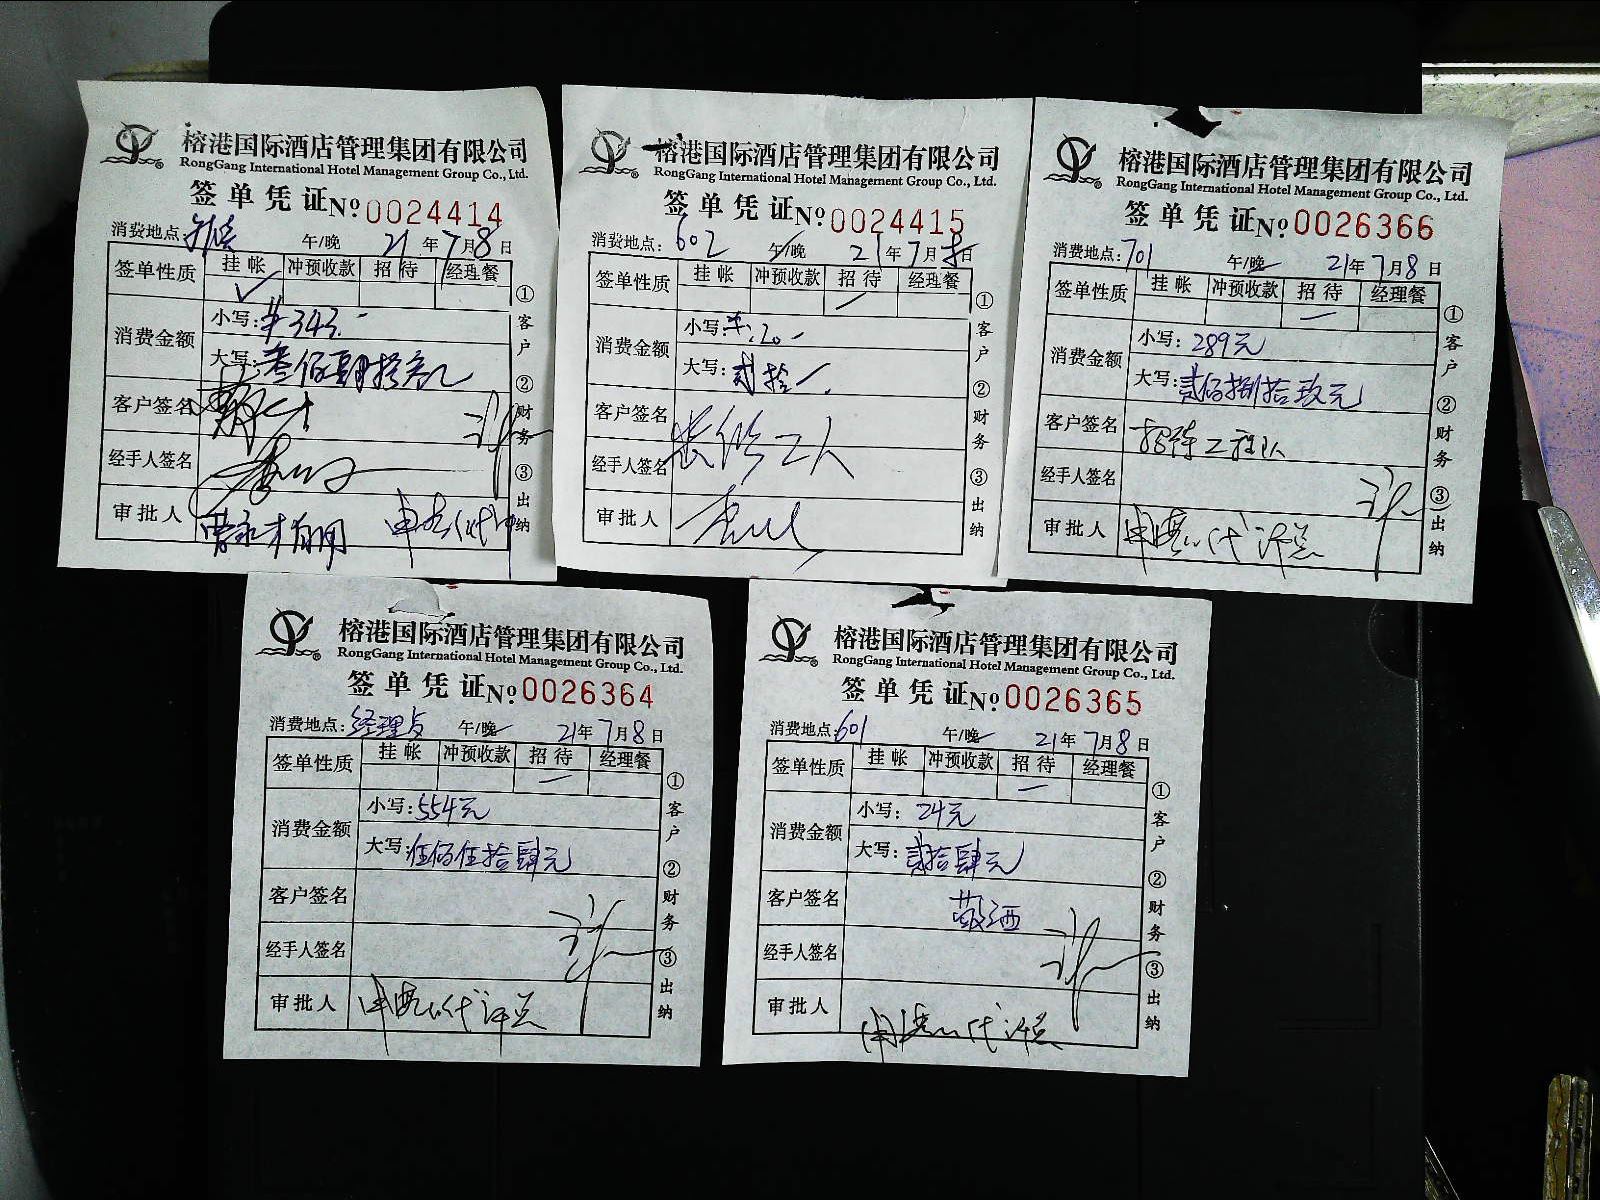 榕港国际酒店管理集团有限公司
RongGang International Hotel Management Group Co., Ltd.
签单凭证 No. 0024414
消费地点: 午/晚 21年7月8日
签单性质 挂帐 冲预收款 招待 经理餐
消费金额 小写: ¥343.-
大写: 叁佰肆拾叁元
客户签名
经手人签名
审批人
①客户 ②财务 ③出纳
榕港国际酒店管理集团有限公司
RongGang International Hotel Management Group Co., Ltd.
签单凭证 No. 0024415
消费地点: 602 午/晚 21年7月 日
签单性质 挂帐 冲预收款 招待 经理餐
消费金额 小写: ¥:20.-
大写: 贰拾
客户签名 装修工人
经手人签名
审批人
①客户 ②财务 ③出纳
榕港国际酒店管理集团有限公司
RongGang International Hotel Management Group Co., Ltd.
签单凭证 No. 0026366
消费地点: 701 午/晚 21年7月8日
签单性质 挂帐 冲预收款 招待 经理餐
消费金额 小写: 289元
大写: 贰佰捌拾玖元
客户签名 招待工程队
经手人签名
审批人 代许总
①客户 ②财务 ③出纳
榕港国际酒店管理集团有限公司
RongGang International Hotel Management Group Co., Ltd.
签单凭证 No. 0026364
消费地点: 经理 午/晚 21年7月8日
签单性质 挂帐 冲预收款 招待 经理餐
消费金额 小写: 554元
大写: 伍佰伍拾肆元
客户签名
经手人签名
审批人 代许总
①客户 ②财务 ③出纳
榕港国际酒店管理集团有限公司
RongGang International Hotel Management Group Co., Ltd.
签单凭证 No. 0026365
消费地点: 601 午/晚 21年7月8日
签单性质 挂帐 冲预收款 招待 经理餐
消费金额 小写: 24元
大写: 贰拾肆元
客户签名 敬酒
经手人签名
审批人 代许总
①客户 ②财务 ③出纳